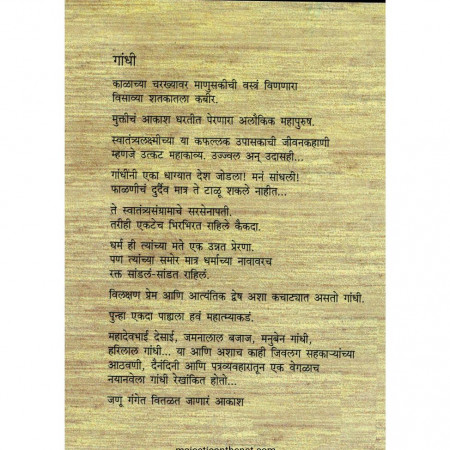 गांधी
काळाच्या चरख्यावर माणुसकीची वस्त्रं विणणारा
विसाव्या शतकातला कबीर.
मुक्तीचं आकाश धरतीत पेरणारा अलौकिक महापुरुष.
स्वातंत्र्यलक्ष्मीच्या या कफल्लक उपासकाची जीवनकहाणी
म्हणजे उत्कट महाकाव्य. उज्ज्वल अन् उदासही...
गांधींनी एका धाग्यात देश जोडला! मनं सांधली!
फाळणीचं दुर्दैव मात्र ते टाळू शकले नाहीत...
ते स्वातंत्र्यसंग्रामाचे सरसेनापती.
तरीही एकटेच भिरभिरत राहिले कैकदा.
धर्म ही त्यांच्या मते एक उन्नत प्रेरणा.
पण त्यांच्या समोर मात्र धर्माच्या नावावरच
रक्त सांडलं-सांडत राहिलं.
विलक्षण प्रेम आणि आत्यंतिक द्वेष अशा कचाट्यात असतो गांधी.
पुन्हा एकदा पाह्यला हवं महात्म्याकडं.
महादेवभाई देसाई, जमनालाल बजाज, मनुबेन गांधी,
हरिलाल गांधी... या आणि अशाच काही जिवलग सहकाऱ्यांच्या
आठवणी, दैनंदिनी आणि पत्रव्यवहारातून एक वेगळाच
नयानवेला गांधी रेखांकित होतो...
जणू गंगेत वितळत जाणारं आकाश